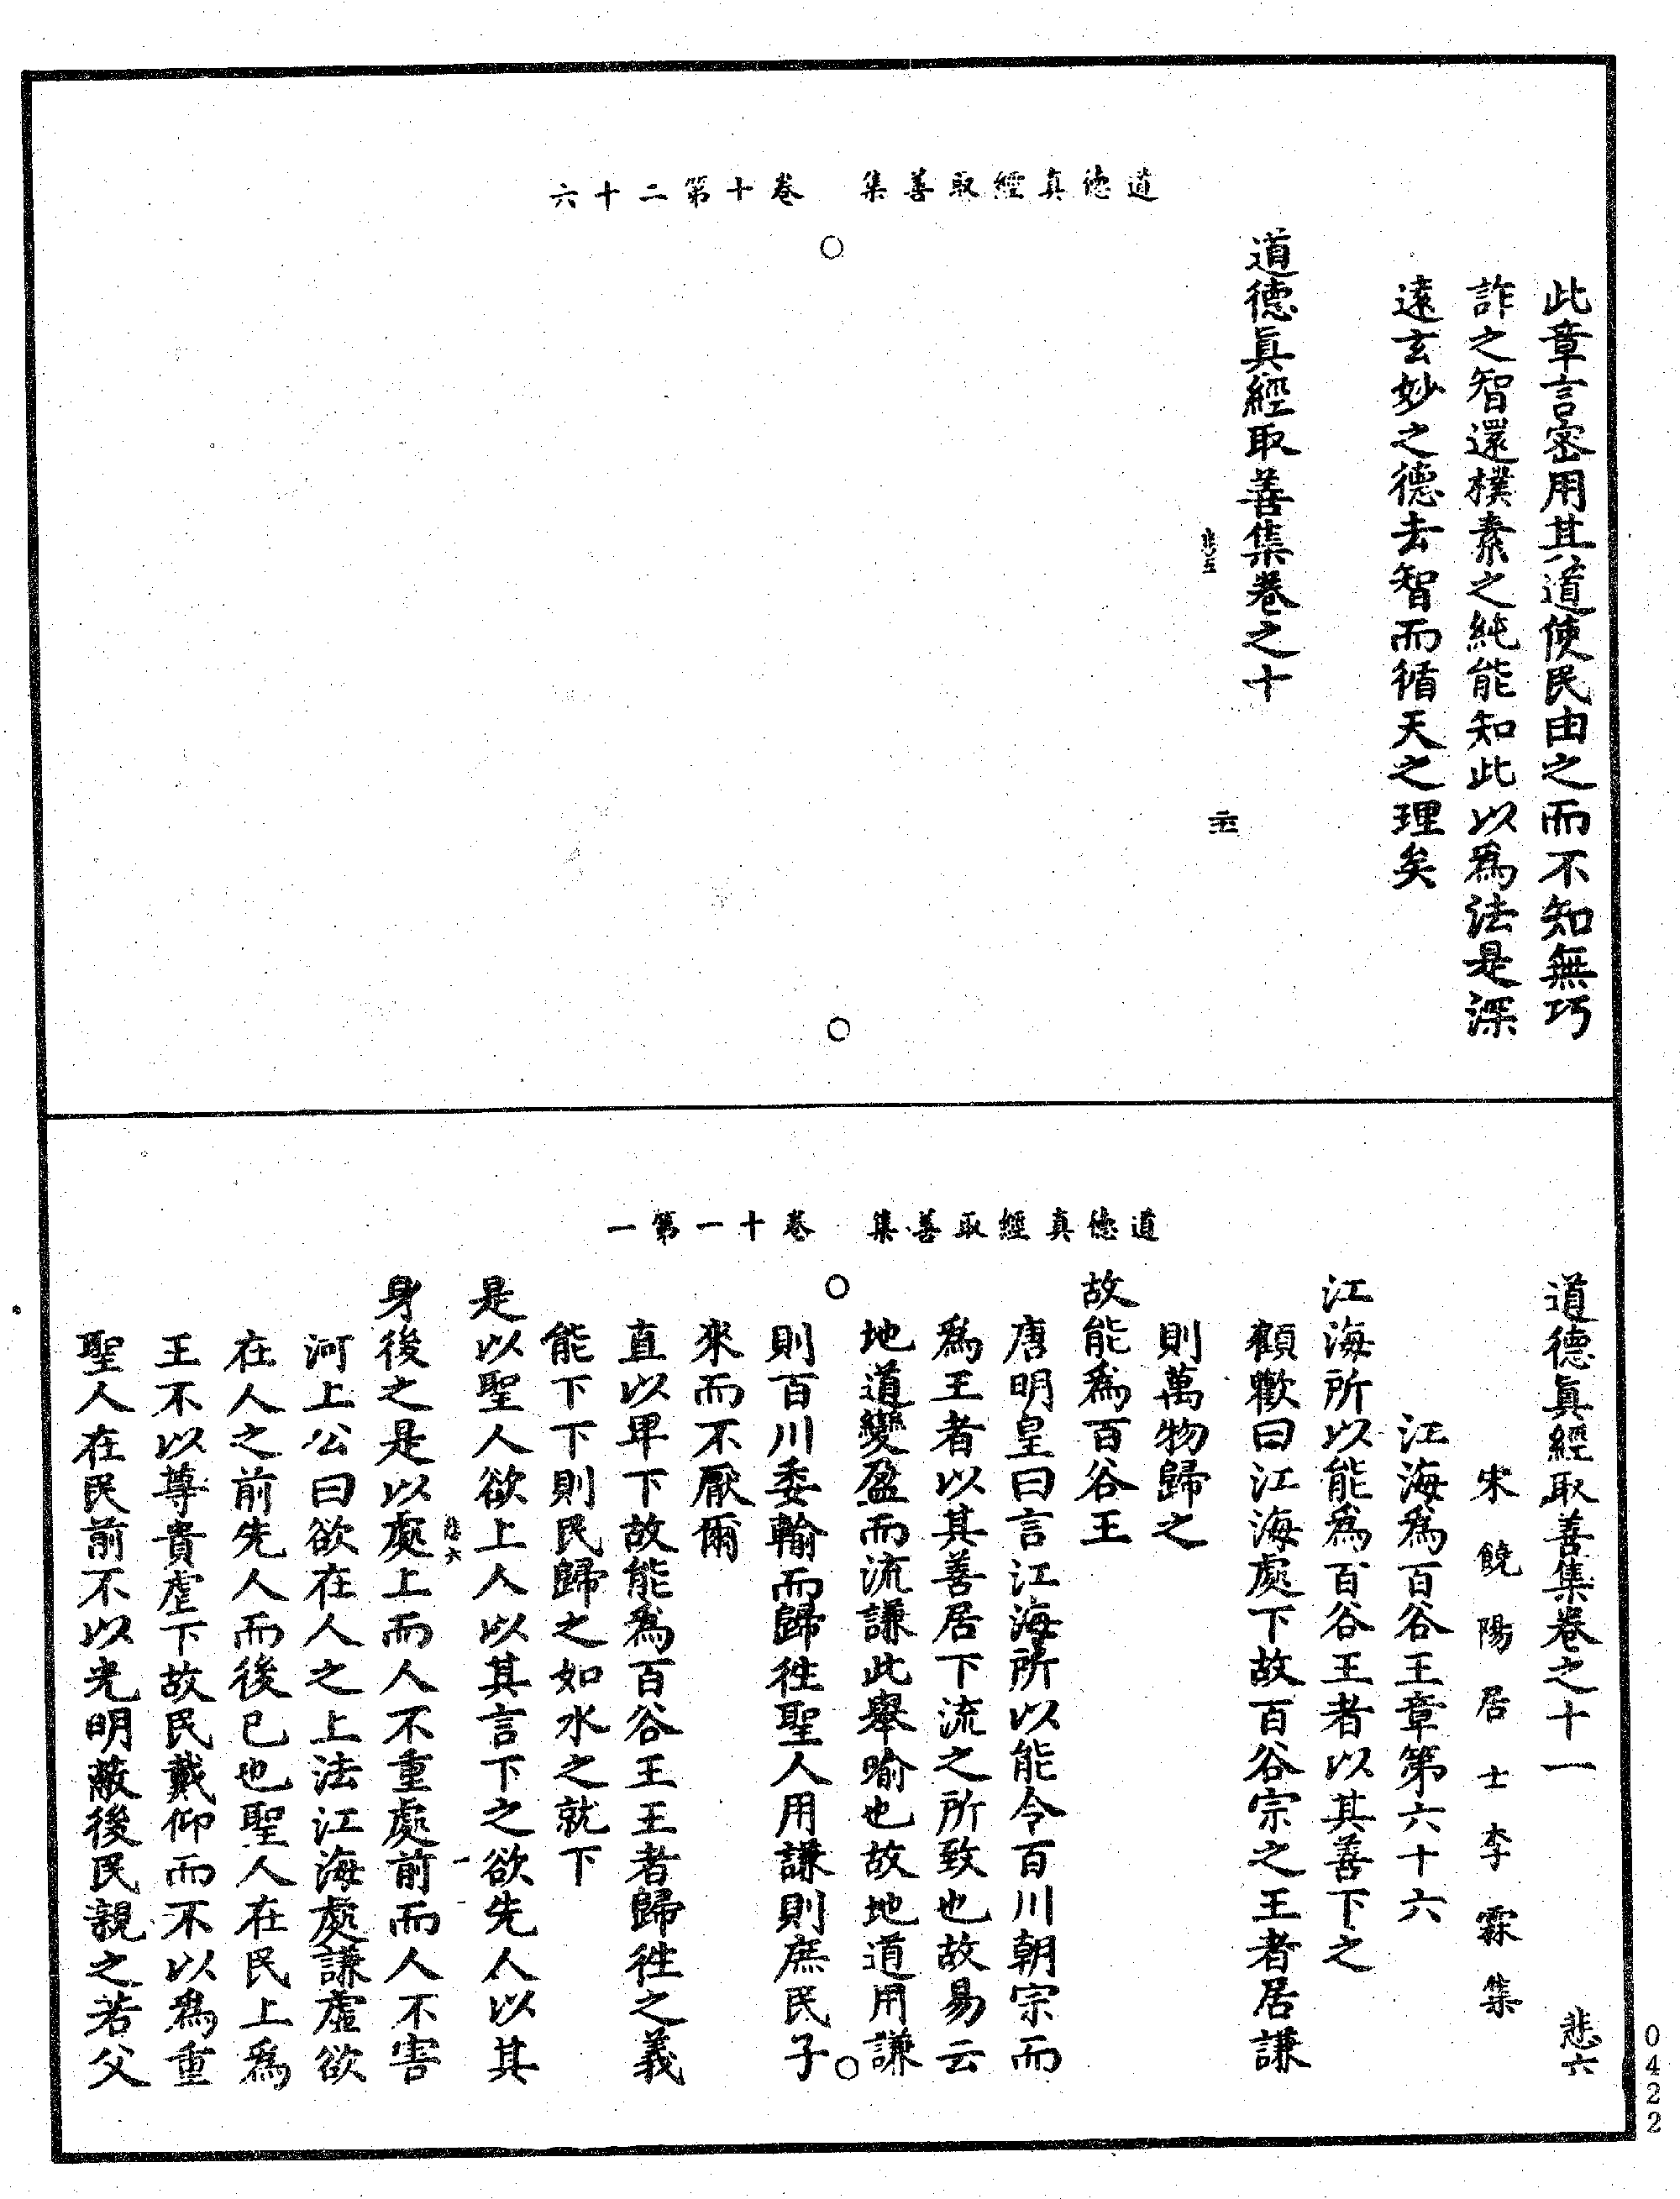 道德真經取善集　卷十第二十六
此章言密用其道使民由之而不知無巧
詐之智還樸素之純能知此以為法是深
遠玄妙之德去智而循天之理矣
道德眞經取善集卷之十
悲五
道德真經取善集　卷十一第一
道德眞經取善集卷之十一　悲六
宋饒陽居士李霖集
江海為百谷王章第六十六
江海所以能為百谷王者以其善下之
顧歡曰江海處下故百谷宗之王者居謙
則萬物歸之
故能為百谷王
唐明皇曰言江海所以能令百川朝宗而
為王者以其善居下流之所致也故易云
地道變盈而流謙此舉喻也故地道用謙
則百川委輸而歸徃聖人用謙則庶民子
來而不厭爾
直以卑下故能為百谷王王者歸徃之義
能下下則民歸之如水之就下
是以聖人欲上人以其言下之欲先人以其
悲六
身後之是以處上而人不重處前而人不害
河上公曰欲在人之上法江海處謙虛欲
在人之前先人而後已也聖人在民上為
王不以尊貴虐下故民戴仰而不以為重
聖人在民前不以光明蔽後民親之若父
0422